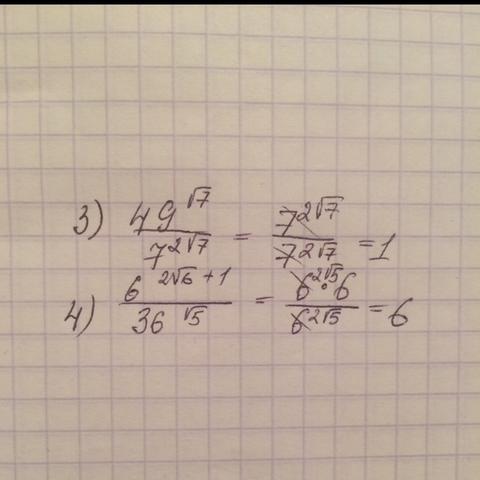 3) 49^√7 / 7^2√7 = 7^2√7 / 7^2√7 = 1
4) 6^2√6 + 1 / 36^√5 = 6^2√5 · 6 / 6^2√5 = 6